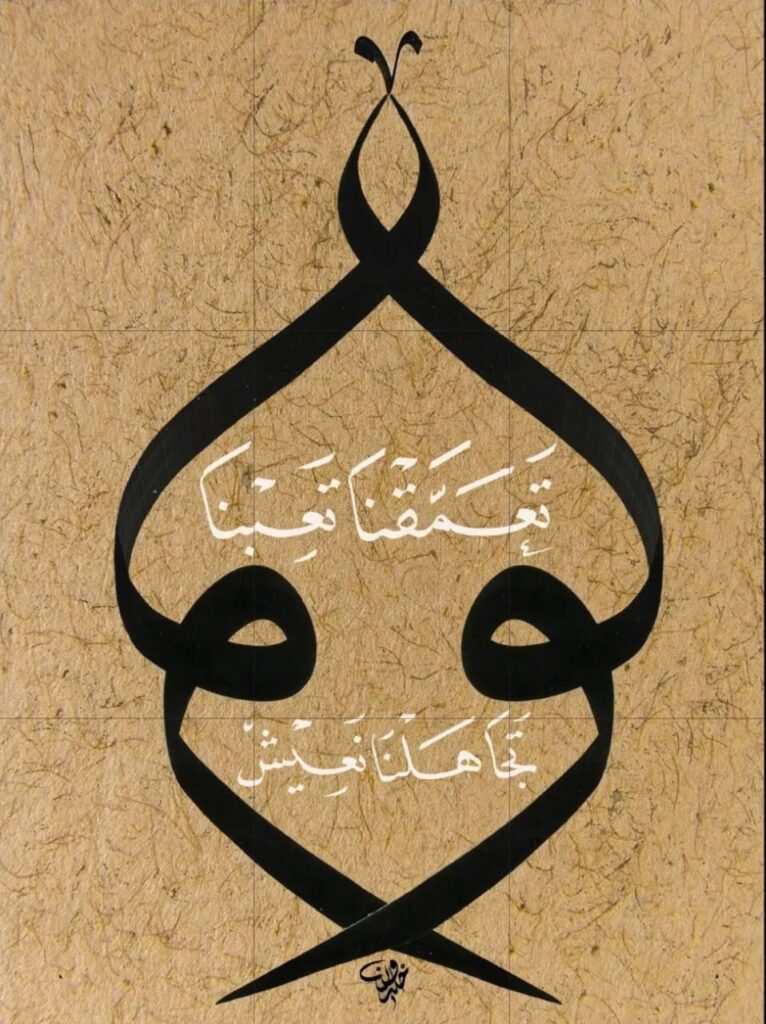 لو
تَعَمَّقْنا تَعِبْنا
تَجَاهَلْنَا نَعِيْش